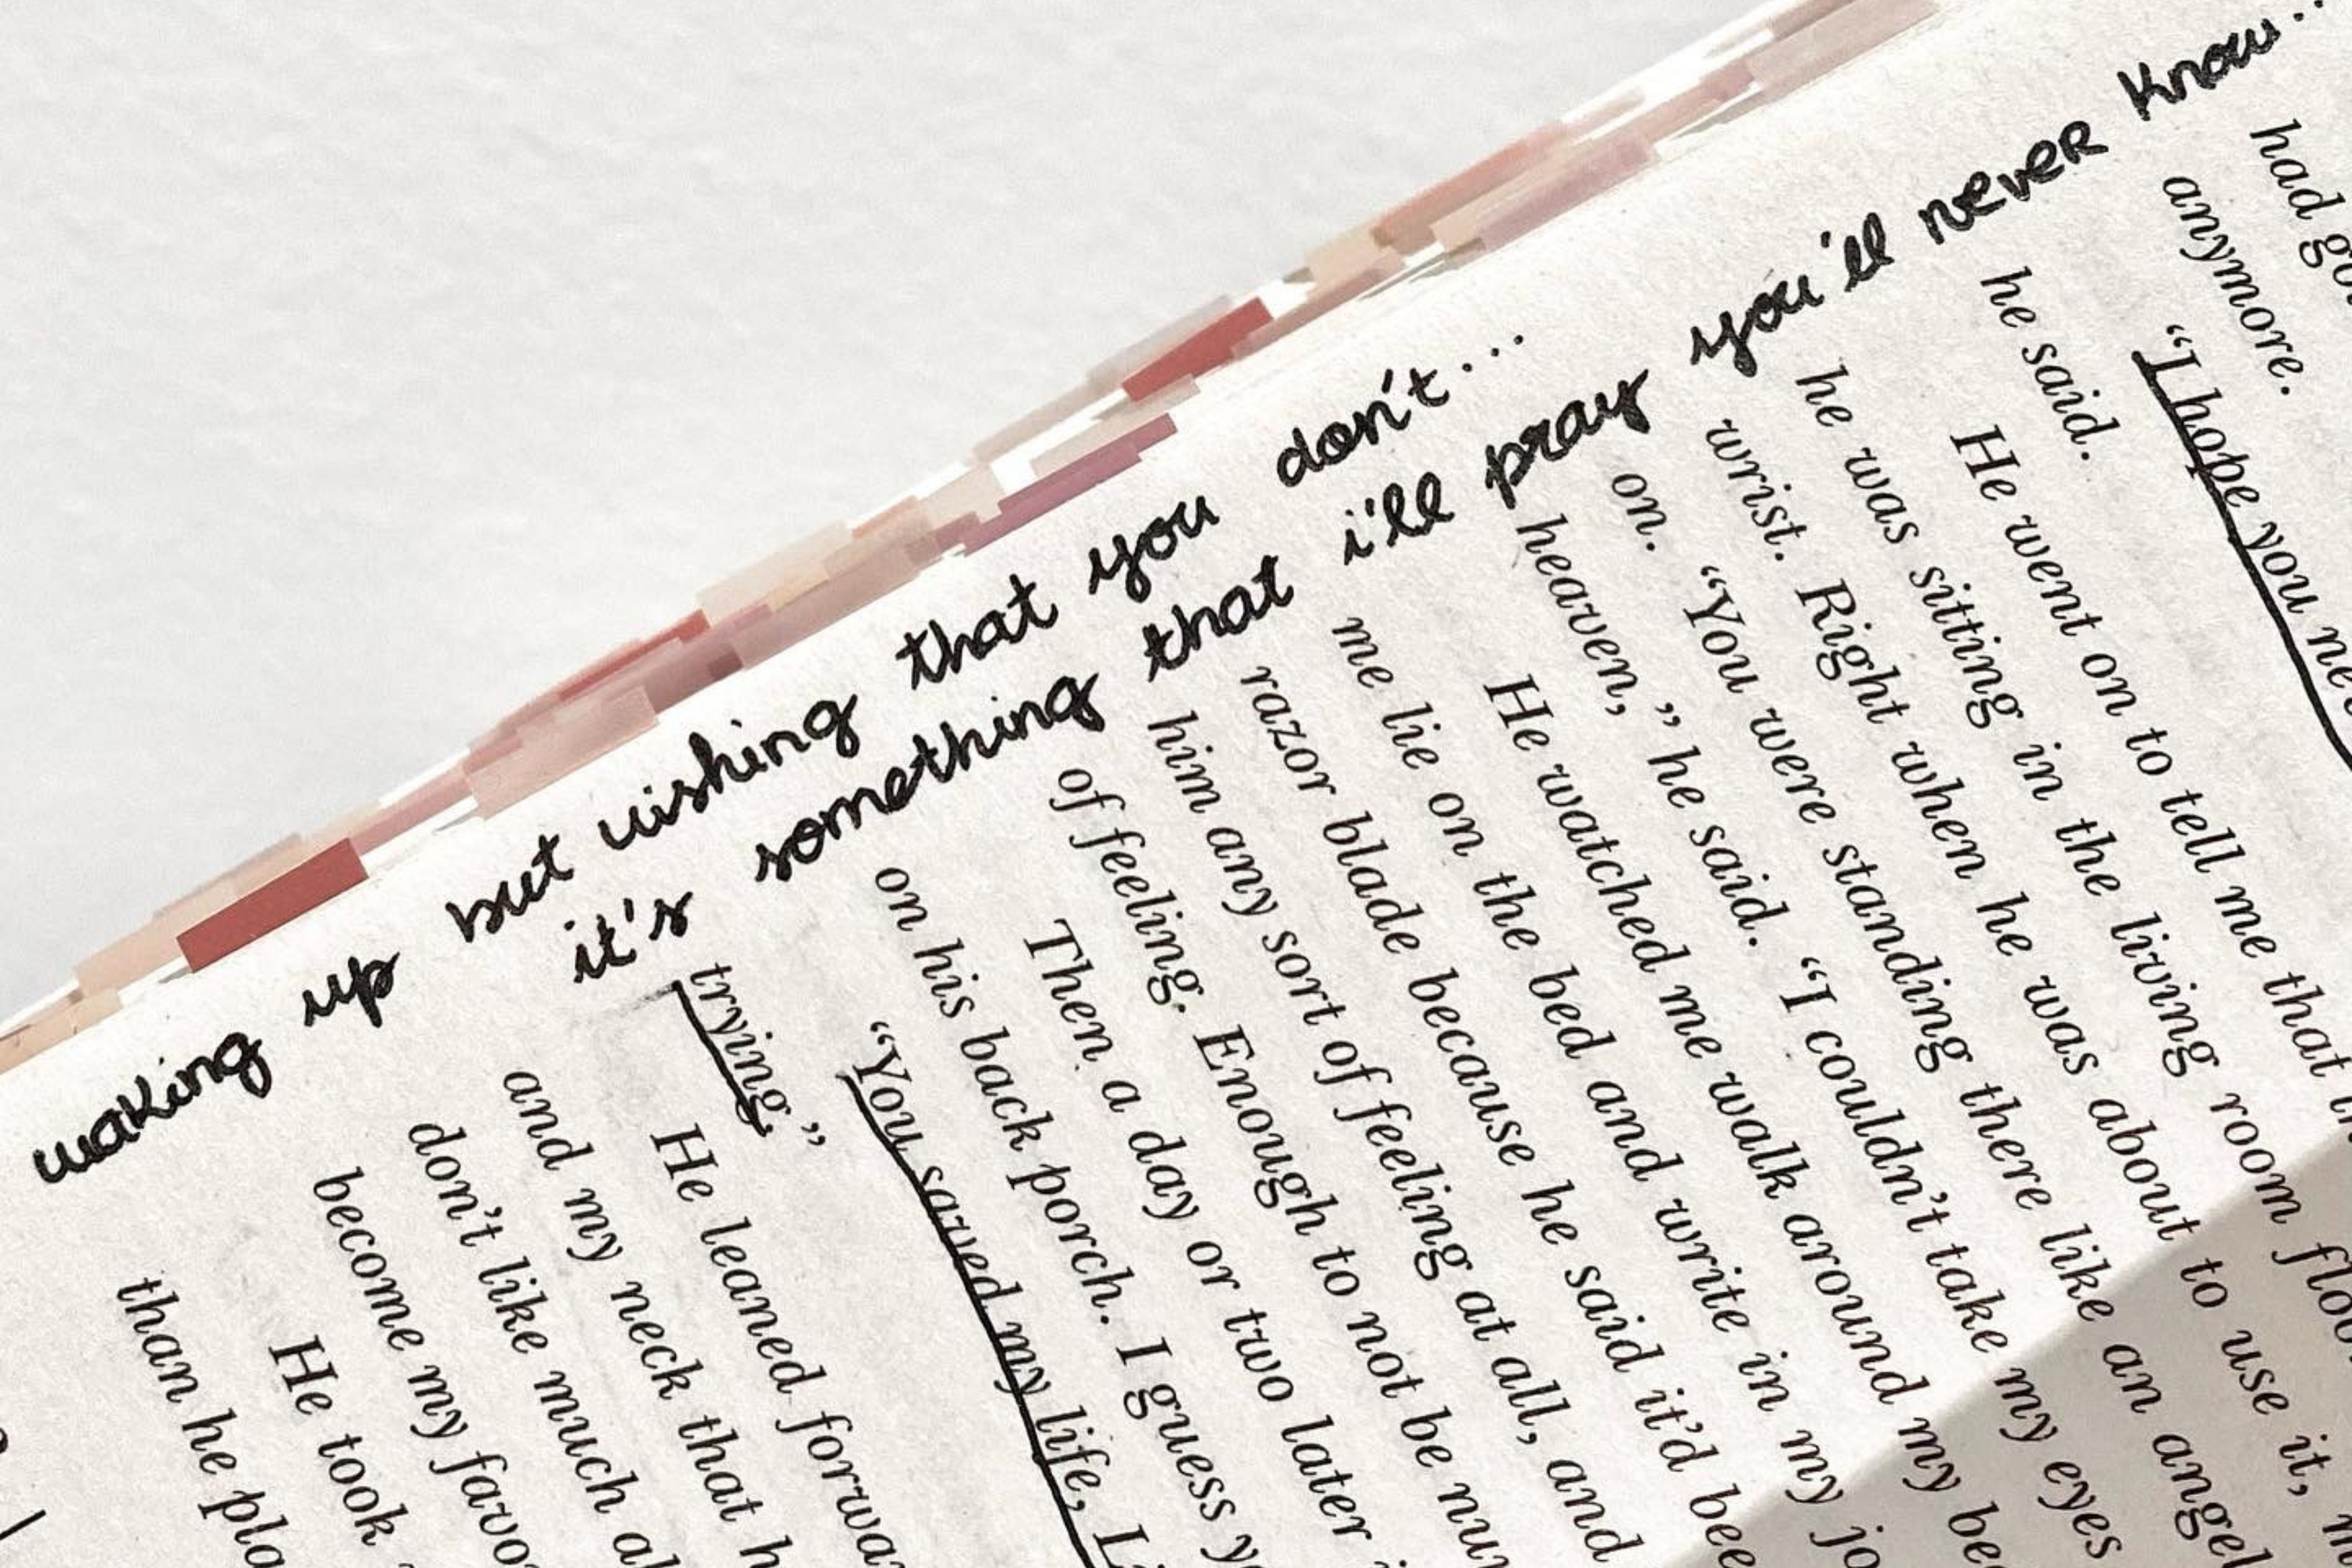 waking up but wishing that you don't...
it's something that i'll pray you'll never know..
had
anymore.
“I hope you
he said.
He went on to tell me that
he was sitting in the living room
wrist. Right when he was about to use it,
on. “You were standing there like an angel
heaven,” he said. “I couldn't take my eyes
He watched me walk around my
me lie on the bed and write in my
razor blade because he said it'd
him any sort of feeling at all, and
of feeling. Enough to not be
Then a day or two later
on his back porch. I guess
“You saved my life,
trying.”
He leaned
and my neck that
don't like much
become my
He took
than he